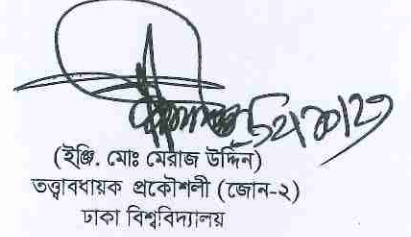 (ইঞ্জি. মোঃ মেরাজ উদ্দিন)
তত্ত্বাবধায়ক প্রকৌশলী (জোন-২)
ঢাকা বিশ্ববিদ্যালয়